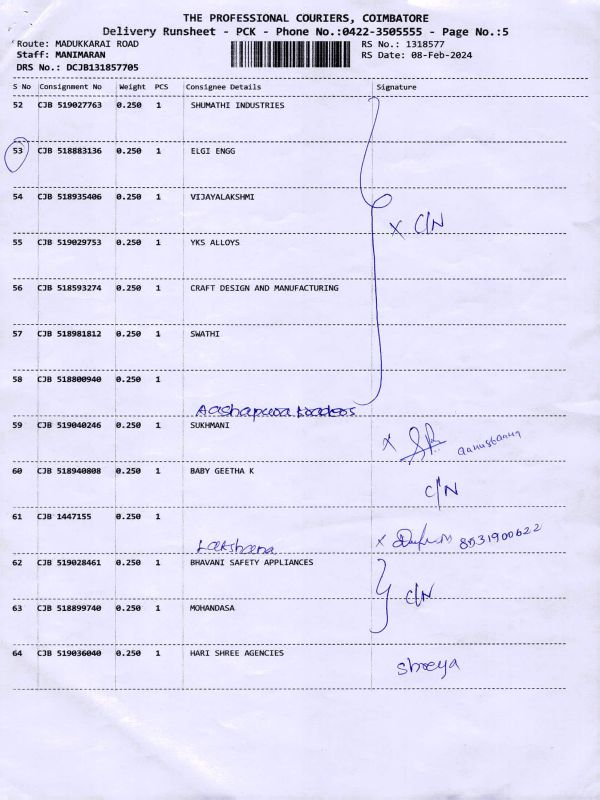 THE PROFESSIONAL COURIERS, COIMBATORE
Delivery Runsheet - PCK - Phone No.:0422-3505555 - Page No.:5
Route: MADUKKARAI ROAD
RS No.: 1318577
Staff: MANIMARAN
RS Date: 08-Feb-2024
DRS No.: DCJB131857705
S No Consignment No Weight PCS Consignee Details Signature
52 CJB 519027763 0.250 1 SHUMATHI INDUSTRIES
53 CJB 518883136 0.250 1 ELGI ENGG
54 CJB 518935406 0.250 1 VIJAYALAKSHMI
X C/N
55 CJB 519029753 0.250 1 YKS ALLOYS
56 CJB 518593274 0.250 1 CRAFT DESIGN AND MANUFACTURING
57 CJB 518981812 0.250 1 SWATHI
58 CJB 518800940 0.250 1
Aashapura
59 CJB 519040246 0.250 1 SUKHMANI
X
60 CJB 518940808 0.250 1 BABY GEETHA K
C/N
61 CJB 1447155 0.250 1
Lakshana
X 8531900622
62 CJB 519028461 0.250 1 BHAVANI SAFETY APPLIANCES
C/N
63 CJB 518899740 0.250 1 MOHANDASA
64 CJB 519036040 0.250 1 HARI SHREE AGENCIES
Shreya